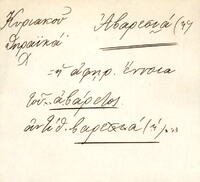 Κυριακοῦ
Θηραϊκά
Ἀβαρεσιὰ (ἡ)
= ἡ ἀφηρ. ἔννοια
τοῦ ἀβάρετος
ἀντίθ. βαρεσιά (ἡ)...